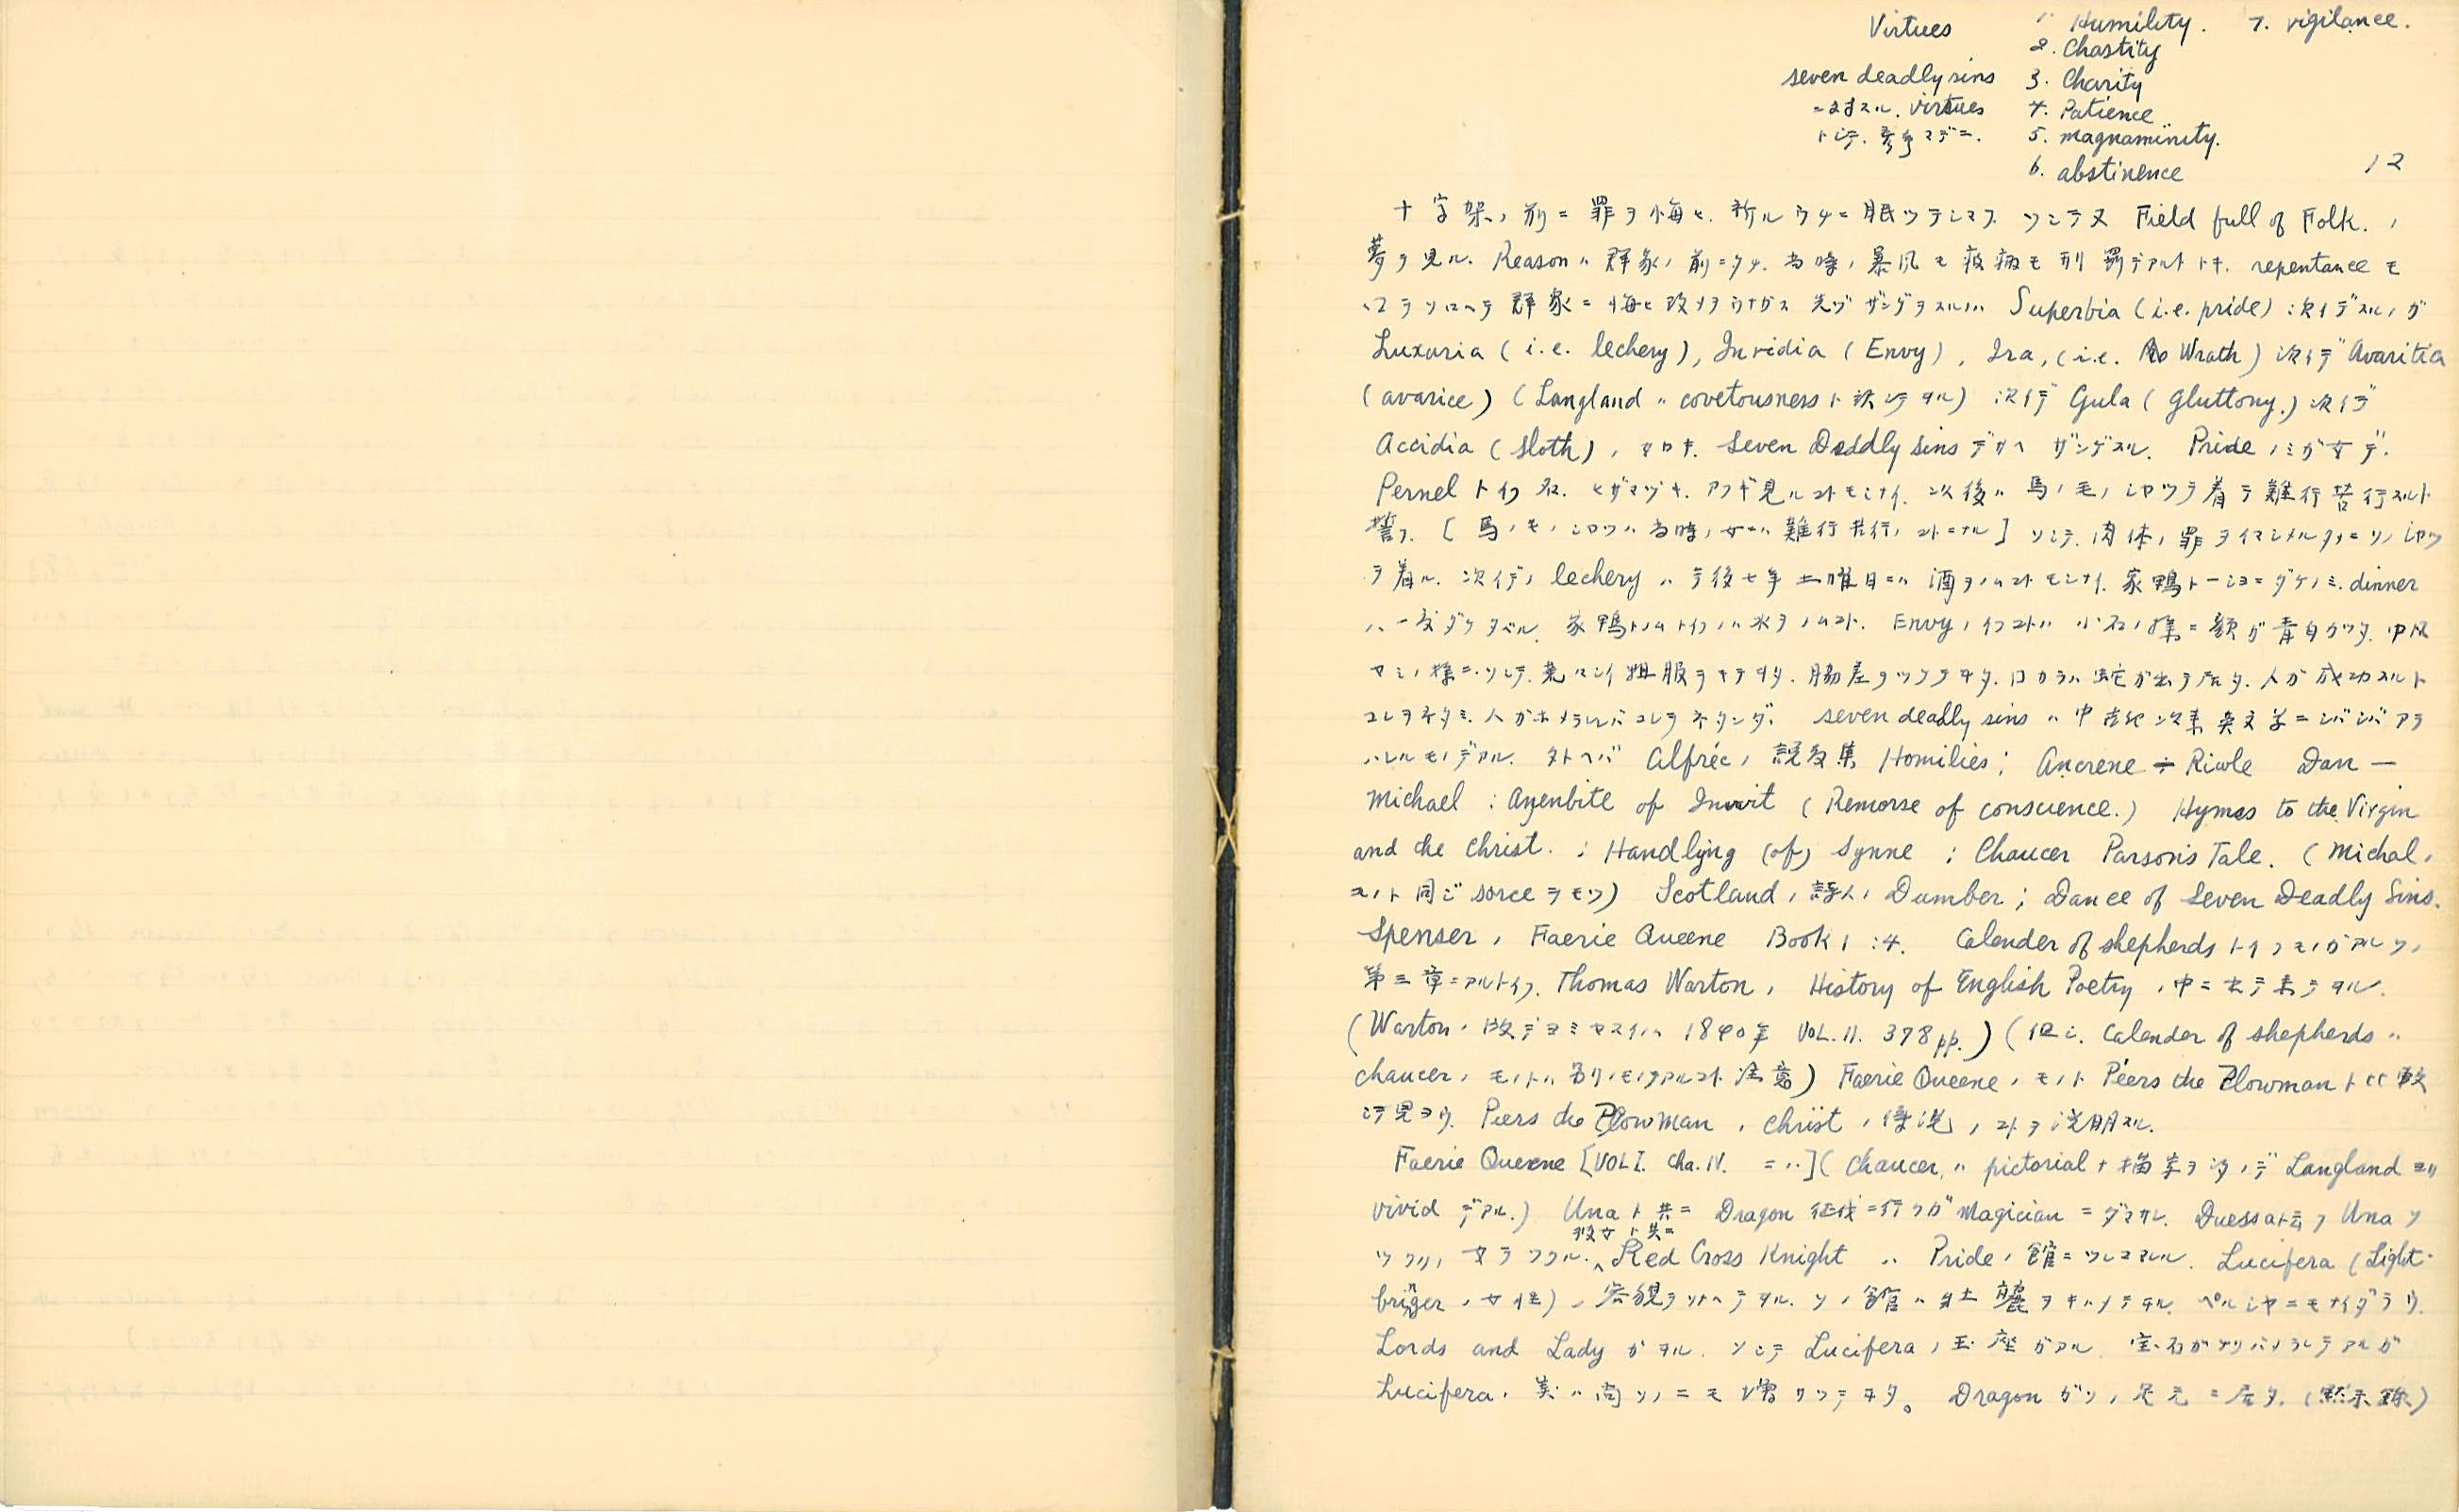 Virtues 1. Humility. 7. vigilance.
2. Chastity
seven deadly sins 3. Charity
ニ対スル. virtues 4. Patience
トシテ. 参考マデニ. 5. magnaminity.
6. abstinence 12
十字架ノ前ニ罪ヲ悔ヒ. 祈ルウチニ眠ツテシマフ. ソシテ又 Field full of Folk. ノ
夢ヲ見ル. Reason ハ 群衆ノ前ニタチ. 当時ノ暴風モ疫病モ刑罰デアルトトキ. repentance モ
群衆ニ悔ヒ改メヲウナガス 先ヅザンゲヲスルハ Superbia (i.e. pride) 次イデスルノガ
Luxuria (i.e. lechery), Invidia (Envy), Ira, (i.e. Wrath) 次イデ Avaritia
(avarice) (Langland ハ covetousness ト訳シテヲル) 次イデ Gula (Gluttony.) 次イデ
Accidia (Sloth), Seven Deadly Sins ザンゲスル. Pride ノミガ女デ.
Pernel トイフ名. ヒザマヅキ. アフギ見ルコトモシナイ. 以後ハ 馬ノ毛ノシヤツヲ着テ難行苦行スルト
誓フ. [馬ノモノシヤツハ当時ノ女ハ難行苦行ノコトニナル] ソシテ. 肉体ノ罪ヲイマシメルタメニソノシヤツ
ヲ着ル. 次イデノ lechery ハ 今後七年土曜日ニハ 酒ヲノムコトモシナイ. 家鴨ト一シヨニダケノミ. dinner
ハ一度ダケタベル. 家鴨トノムトイフノハ水ヲノムコト. Envy ノイフコトハ 小石ノ様ニ顔ガ青白カツタ. 中風
ヤミノ様ニ. ソシテ. 粗服ヲキテヲリ. 脇差ヲツケテヰタ. 口カラハ蛇ガ出テ居タ. 人ガ成功スルト
コレヲネタミ. 人ガホメラレレバコレヲネタンダ. seven deadly sins ハ 中古紀以来英文学ニシバシバアラ
ハレルモノデアル. 例ヘバ Alfréc ノ説教集 Homilies; Ancrene Riwle Dan —
Michael : Ayenbite of Inwit (Remorse of conscience.) Hymns to the Virgin
and the Christ. : Handlyng (of) Synne : Chaucer Parson's Tale. (Michal.
ト同ジ sorce ヲモツ) Scotland ノ詩人 Dumber ; Dance of Seven Deadly Sins.
Spenser, Faerie Queene Book 1 : 4. Calender of shepherds トイフモノガアルソノ
第三章ニアルトイフ. Thomas Warton, History of English Poetry ノ中ニ出テ来テヲル.
(Warton ノ版デヨミヤスイハ 1840年 VOL. II. 378 pp.) (但シ. Calender of shepherds ハ
Chaucer ノモノトハ別ノモノデアルコト注意) Faerie Queene ノモノト Piers the Plowman ト比較
シテ見ヨウ. Piers the Plowman ノ Christ ノ傳説ノコトヲ説明スル.
Faerie Queene [VOL I. Cha. IV. ニハ] (Chaucer ハ pictorial ナ描写ヲ Langland ヨリ
vivid デアル.) Una ト共ニ Dragon 征伐ニ行クガ Magician ニダマサレ. Duessa ト云フ Una ヲ
彼女ト共ニ
Red Cross Knight ハ Pride ノ館ニツレコマレル. Lucifera (Light-
bringer ノ女性) ノ容貌ヲソナヘテヲル. ソノ館ハ壮麗ヲキハメテヰル. ペルシヤニモナイダラウ.
Lords and Lady ガヲル. ソシテ Lucifera ノ玉座ガアル. 宝石ガチリバメラレテアルガ
Lucifera ノ美ハ尚ソノニモ増サツテヰタ。 Dragon ガソノ足元ニ居タ. (黙示録)